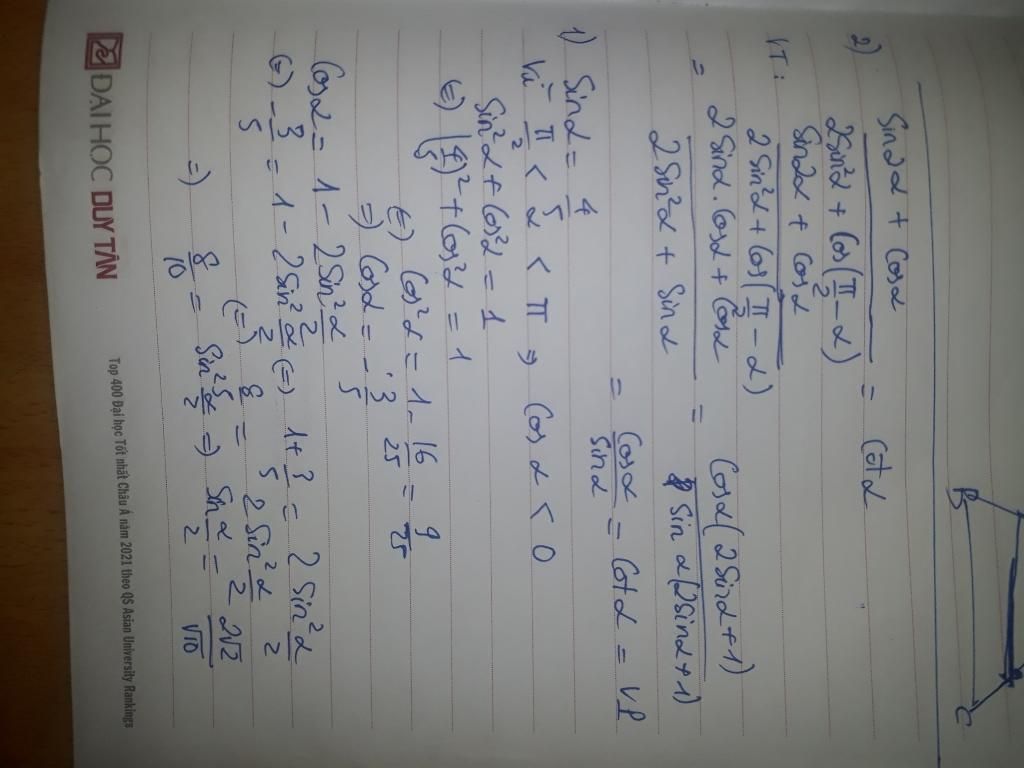 B
C
2) Sin2α + Cosα / 2Sin²α + Cos(π/2 - α) = Cotα
VT: Sin2α + Cosα / 2Sin²α + Cos(π/2 - α)
= 2Sinα.Cosα + Cosα / 2Sin²α + Sinα = Cosα(2Sinα+1) / Sinα(2Sinα+1)
= Cosα / Sinα = Cotα = VP
1) Sinα = 4/5
Vì π/2 < α < π => Cosα < 0
Sin²α + Cos²α = 1
(=) (4/5)² + Cos²α = 1
(=) Cos²α = 1 - 16/25 = 9/25
=) Cosα = -3/5
Cosα = 1 - 2Sin²α/2
(=) -3/5 = 1 - 2Sin²α/2 (=) 1+3/5 = 2Sin²α/2
(=) 8/5 = 2Sin²α/2
=) 8/10 = Sin²α/2 =) Sinα/2 = 2√2/√10
ĐẠI HỌC DUY TÂN
Top 400 Đại học Tốt nhất Châu Á năm 2021 theo QS Asian University Rankings